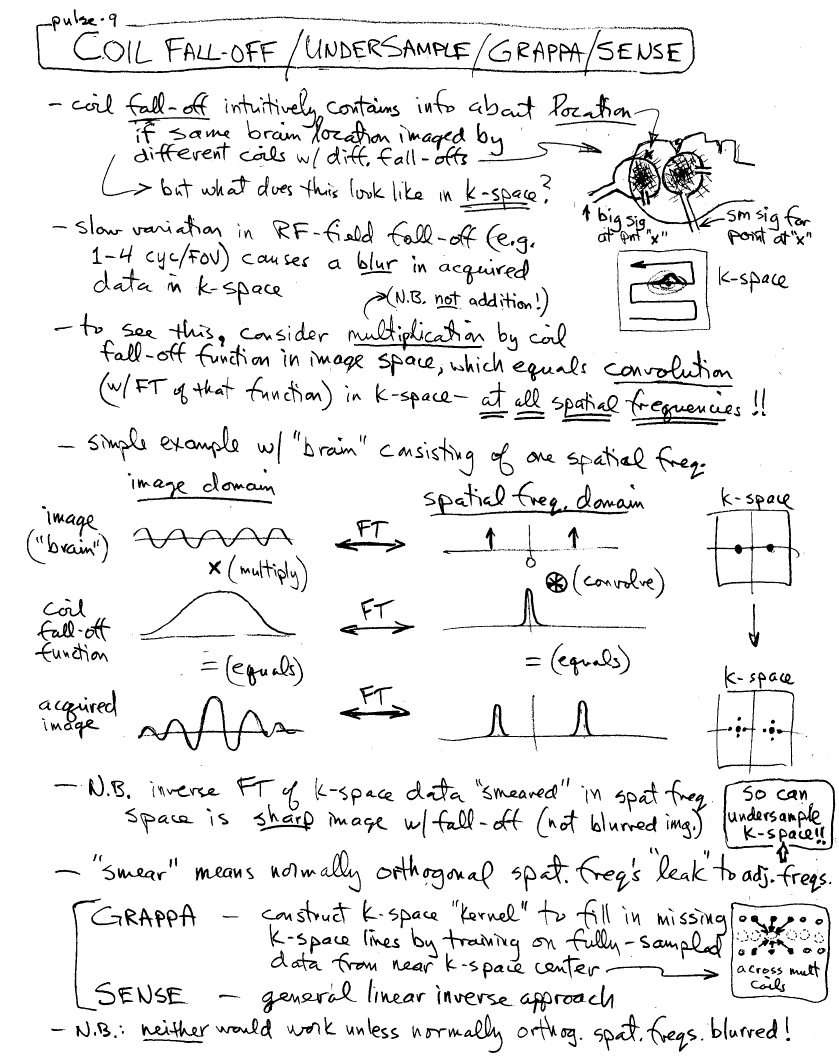 pulse-9
COIL FALL-OFF / UNDERSAMPLE / GRAPPA / SENSE
- coil fall-off intuitively contains info about location
if same brain location imaged by
different coils w/ diff. fall-offs
but what does this look like in k-space?
x
↑ big sig
at pnt "x"
sm sig for
point at "x"
- slow variation in RF-field fall-off (e.g.
1-4 cyc/FOV) causes a blur in acquired
data in k-space
k-space
(N.B. not addition!)
- to see this, consider multiplication by coil
fall-off function in image space, which equals convolution
(w/ FT of that function) in k-space - at all spatial frequencies!!
- simple example w/ "brain" consisting of one spatial freq.
image domain
spatial freq. domain
k-space
image
("brain")
FT
0
x (multiply)
⊛ (convolve)
coil
fall-off
function
FT
= (equals)
= (equals)
k-space
acquired
image
FT
- N.B. inverse FT of k-space data "smeared" in spat freq
space is sharp image w/ fall-off (not blurred img.)
so can
undersample
k-space!!
- "smear" means normally orthogonal spat. freq's "leak" to adj. freqs.
GRAPPA - construct k-space "kernel" to fill in missing
k-space lines by training on fully-sampled
data from near k-space center
across mult
coils
SENSE - general linear inverse approach
- N.B.: neither would work unless normally orthog. spat. freqs. blurred!